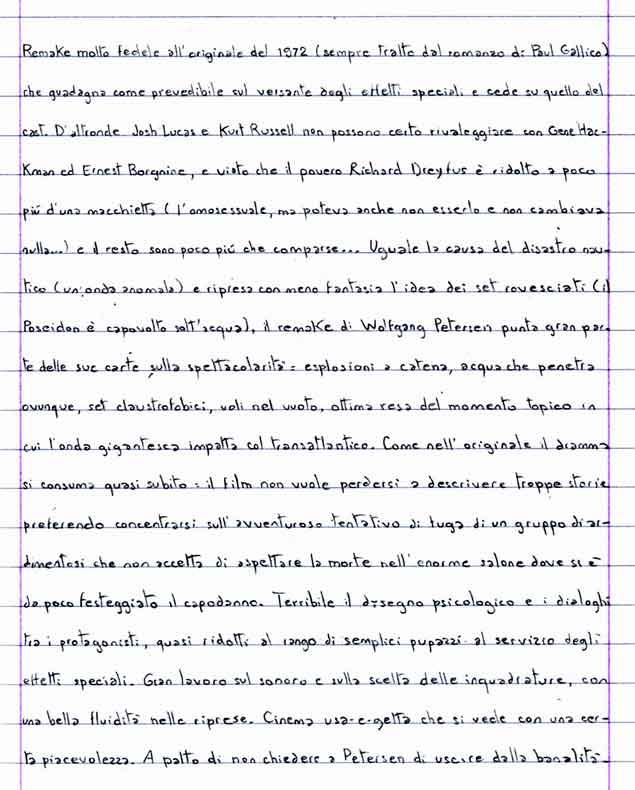 Remake molto fedele all'originale del 1972 (sempre tratto dal romanzo di Paul Gallico)
che guadagna come prevedibile sul versante degli effetti speciali e cede su quello del
cast. D'altronde Josh Lucas e Kurt Russell non possono certo rivaleggiare con Gene Hac-
kman ed Ernest Borgnine, e visto che il povero Richard Dreyfus è ridotto a poco
più d'una macchietta (l'omosessuale, ma poteva anche non esserlo e non cambiava
nulla...) e il resto sono poco più che comparse... Uguale la causa del disastro nau-
tico (un'onda anomala) e ripresa con meno fantasia l'idea dei set rovesciati (il
Poseidon è capovolto sott'acqua), il remake di Wolfgang Petersen punta gran par-
te delle sue carte sulla spettacolarità: esplosioni a catena, acqua che penetra
ovunque, set claustrofobici, voli nel vuoto, ottima resa del momento topico in
cui l'onda gigantesca impatta col transatlantico. Come nell'originale il dramma
si consuma quasi subito: il film non vuole perdersi a descrivere troppe storie
preferendo concentrarsi sull'avventuroso tentativo di fuga di un gruppo di ar-
dimentosi che non accetta di aspettare la morte nell'enorme salone dove si è
da poco festeggiato il capodanno. Terribile il disegno psicologico e i dialoghi
tra i protagonisti, quasi ridotti al rango di semplici pupazzi al servizio degli
effetti speciali. Gran lavoro sul sonoro e sulla scelta delle inquadrature, con
una bella fluidità nelle riprese. Cinema usa-e-getta che si vede con una cer-
ta piacevolezza. A patto di non chiedere a Petersen di uscire dalla banalità.